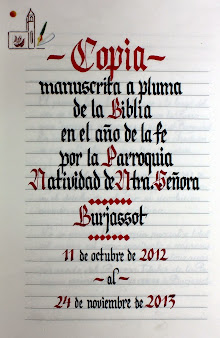 ~Copia~
manuscrita a pluma
de la Biblia
en el año de la fe
por la Parroquia
Natividad de Ntra. Señora
Burjassot
11 de octubre de 2012
~ al ~
24 de noviembre de 2013